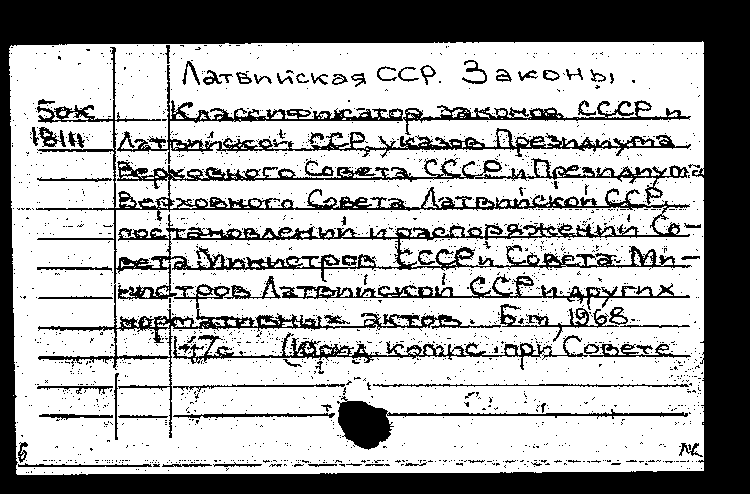 Латвийская ССР. Законы.
5ож Классификатор законов СССР и
18111 Латвийской ССР, указов Президиума
Верховного Совета СССР и Президиума
Верховного Совета Латвийской ССР,
постановлений и распоряжений Со-
вета Министров СССР и Совета Ми-
нистров Латвийской ССР и других
нормативных актов. Б.м., 1968.
147с. (Юрид. комис. при Совете
б